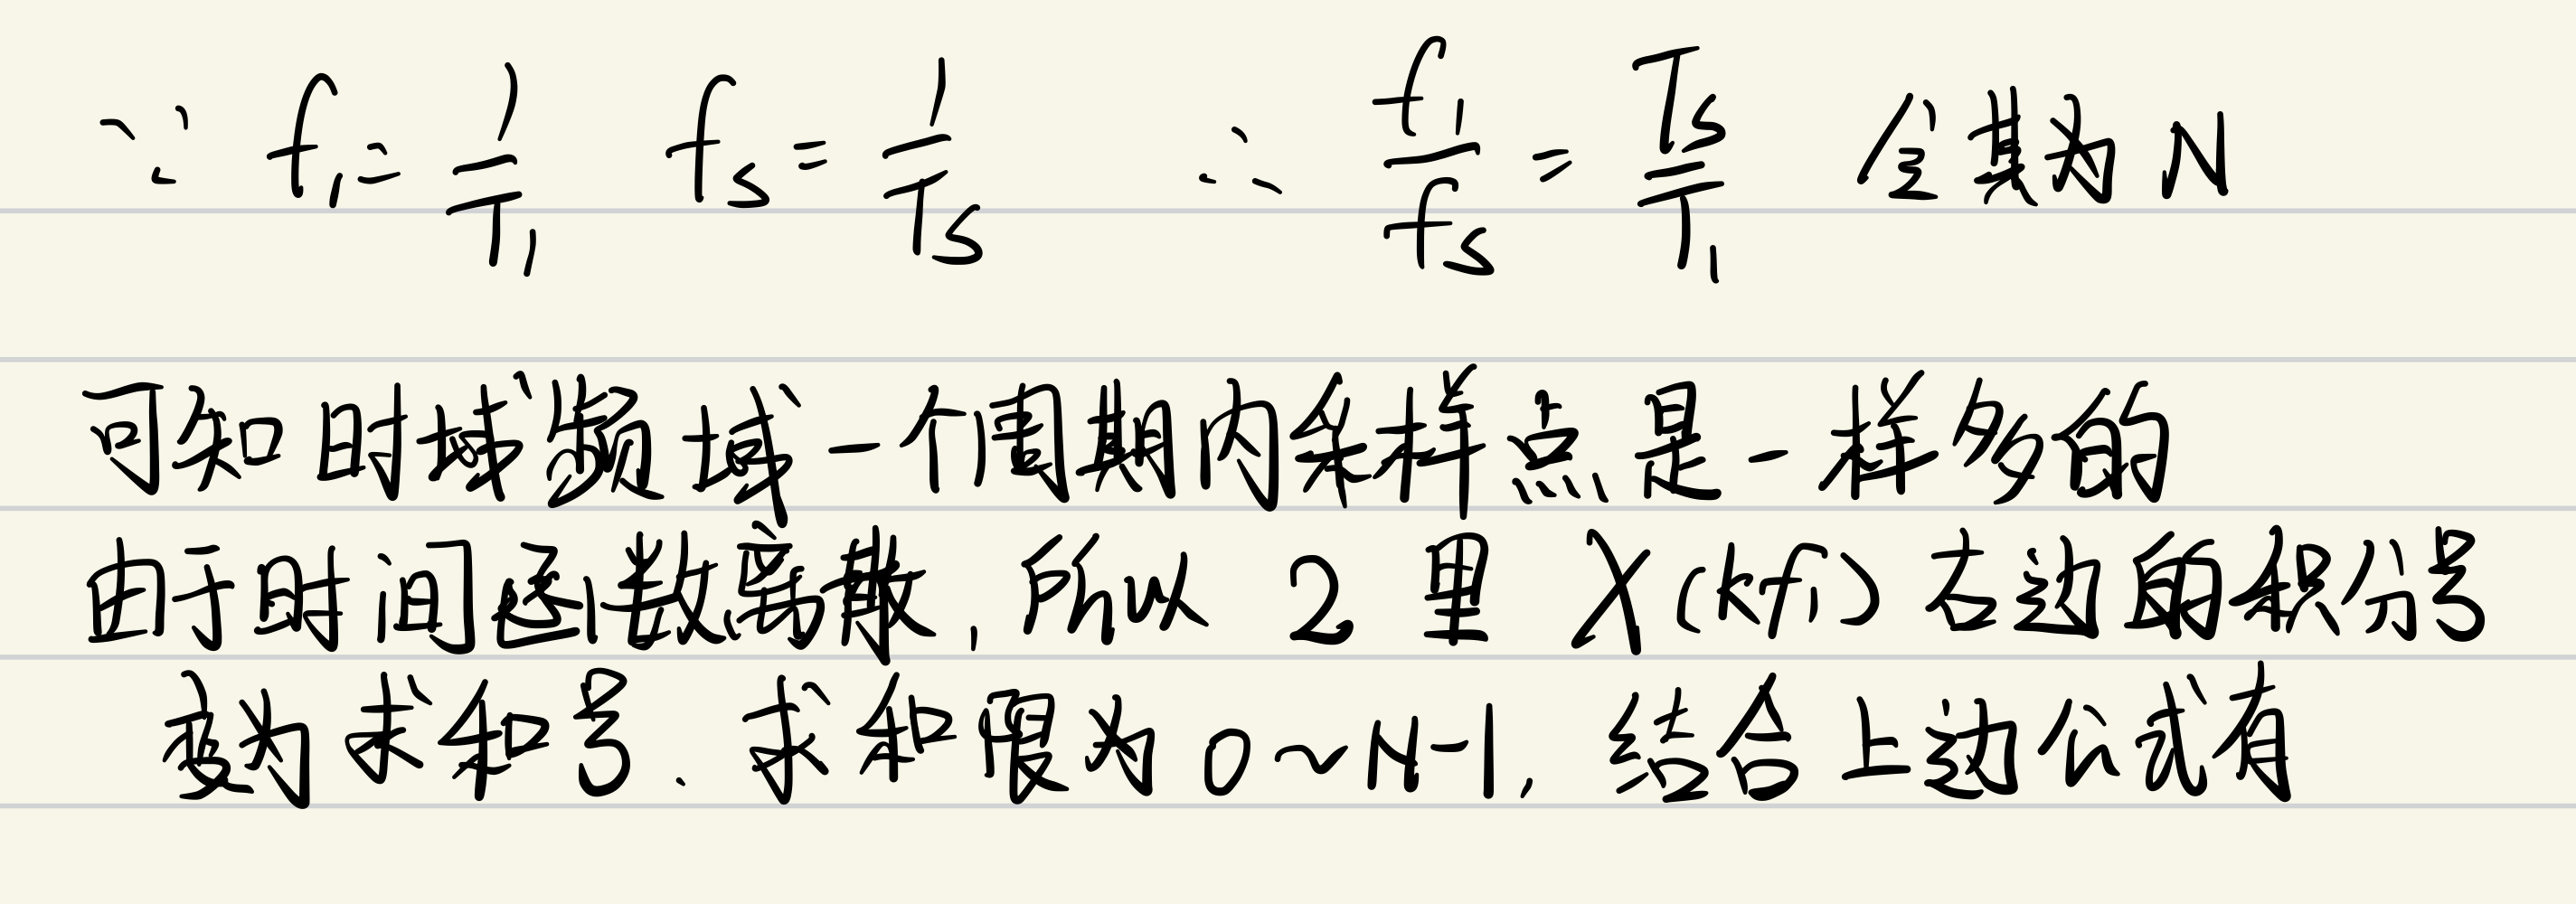 ∵ f₁ = 1/T₁ fs = 1/Ts ∴ f₁/fs = Ts/T₁ 令其为N
可知时域频域一个周期内采样点是一样多的
由于时间函数离散,所以 2 里 X(kf₁) 右边的积分号
变为求和号、求和限为 0~N-1, 结合上边公式有